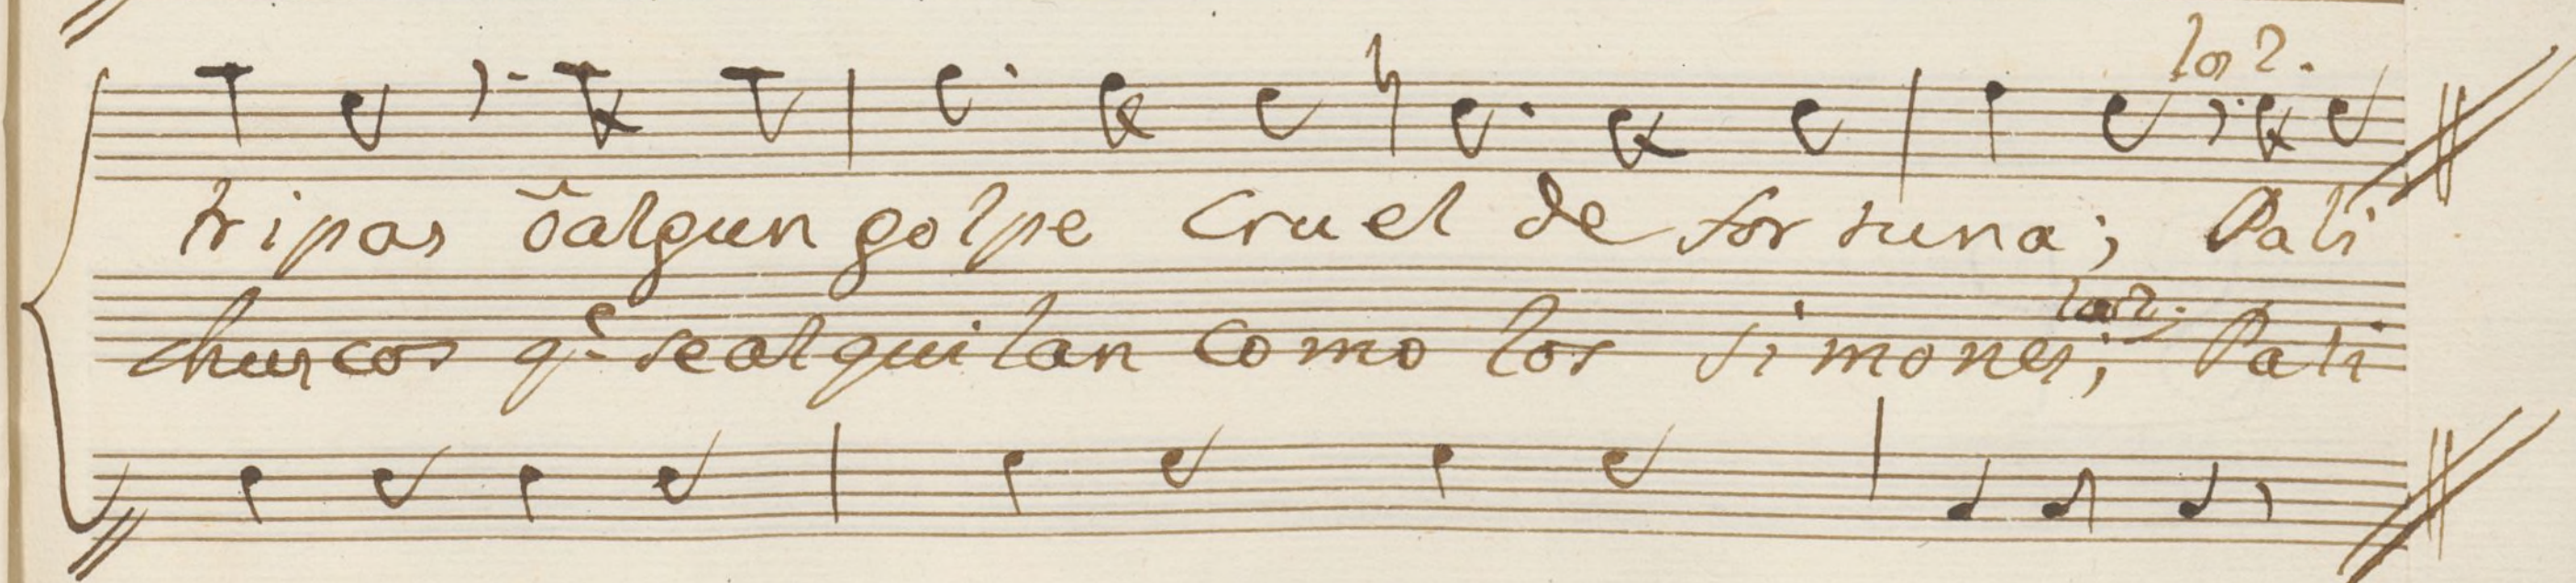 los 2.
tripas ôalgun golpe Cruel de fortuna; Pali
los 2.
chuscos q.e sealquilan Como los simones; Pali